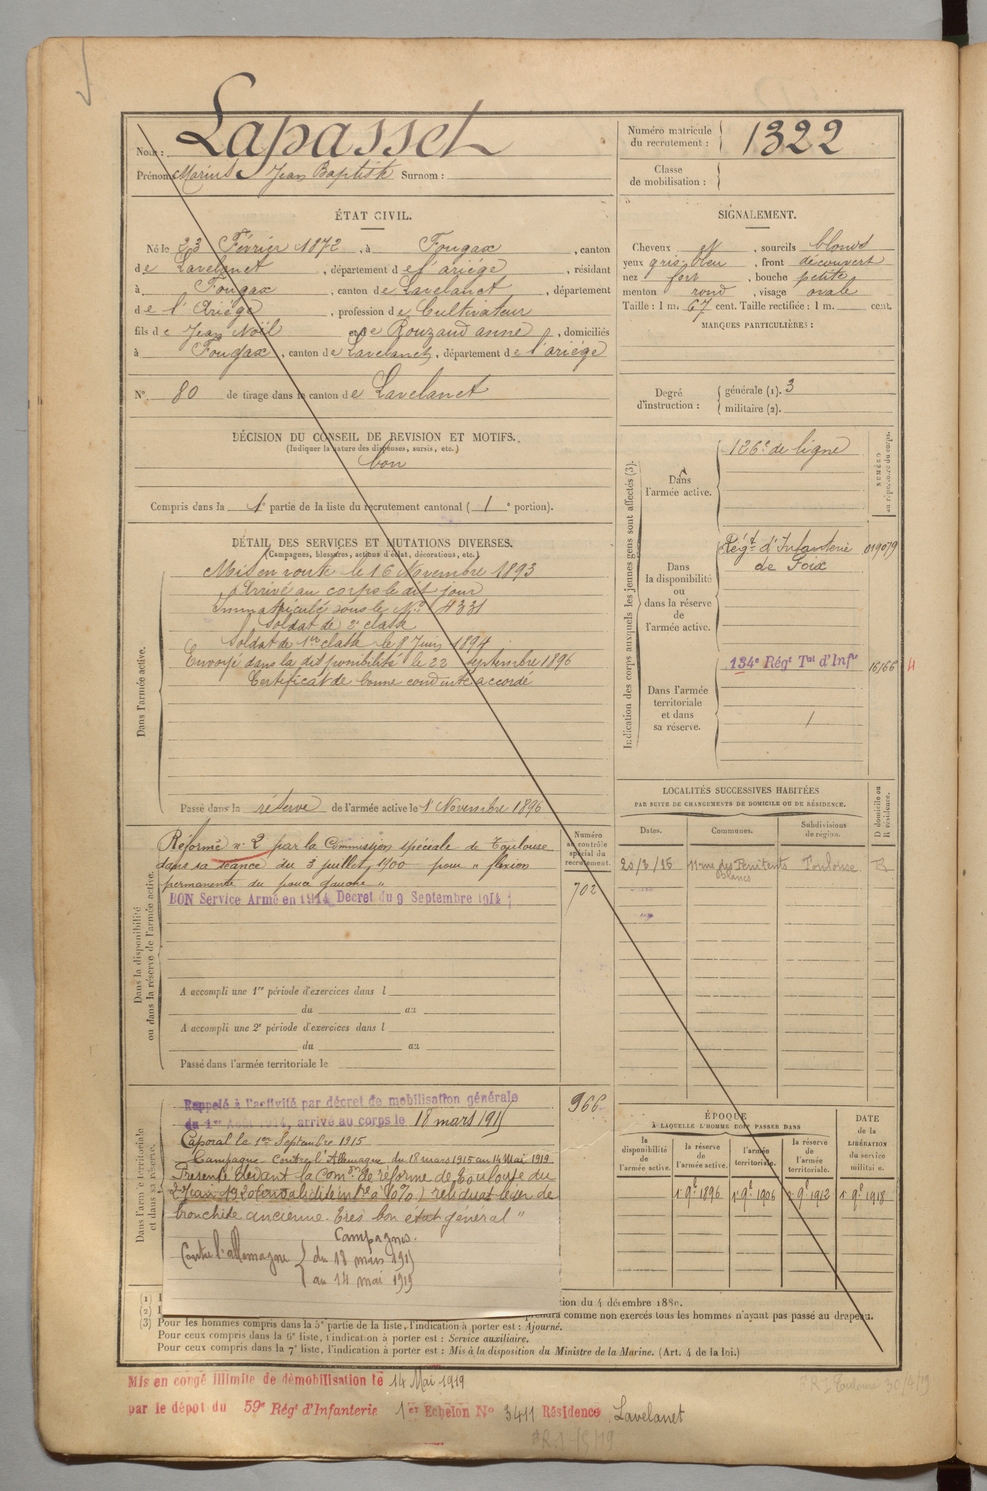 Nom : Lapasset
Prénoms Marius Jean Baptiste Surnom :
Numéro matricule du recrutement : 1322
Classe de mobilisation :
ÉTAT CIVIL.
Né le 23 Février 1872, à Fougax, canton
de Lavelanet, département de l'ariége, résidant
à Fougax, canton de Lavelanet, département
de l'Ariége, profession de Cultivateur
fils de Jean Noël et de Rouzaud anne, domiciliés
à Fougax, canton de Lavelanet, département de l'ariége
N° 80 de tirage dans le canton de Lavelanet
SIGNALEMENT.
Cheveux et, sourcils blonds
yeux gris bleu, front découvert
nez fort, bouche petite
menton rond, visage ovale
Taille : 1 m. 67 cent. Taille rectifiée : 1 m. cent.
MARQUES PARTICULIÈRES :
Degré d'instruction : générale (1). 3
militaire (2).
DÉCISION DU CONSEIL DE REVISION ET MOTIFS.
(Indiquer la nature des dispenses, sursis, etc.)
bon
Compris dans la 1e partie de la liste du recrutement cantonal ( 1 e portion).
DÉTAIL DES SERVICES ET MUTATIONS DIVERSES.
(Campagnes, blessures, actions d'éclat, décorations, etc.)
Dans l'armée active.
Mis en route le 16 Novembre 1893
Arrivé au corps le dit jour
Immatriculé sous le N° 4331
Soldat de 2e classe
Soldat de 1re classe le 8 Juin 1894
Envoyé dans la disponibilité le 22 Septembre 1896
Certificat de bonne conduite accordé
Passé dans la réserve de l'armée active le 1 Novembre 1896
Indication des corps auxquels les jeunes gens sont affectés (3).
NUMÉRO au répertoire du corps.
Dans l'armée active.
126e de ligne
Dans la disponibilité ou dans la réserve de l'armée active.
Régt d'Infanterie de Foix 019079
Dans l'armée territoriale et dans sa réserve.
134e Régt Tal d'Infie 16166
LOCALITÉS SUCCESSIVES HABITÉES
PAR SUITE DE CHANGEMENTS DE DOMICILE OU DE RÉSIDENCE.
Dates. Communes. Subdivisions de région. D domicile ou R résidence.
20/3/16 11 rue des Penitents blancs Toulouse R
Dans la disponibilité ou dans la réserve de l'armée active.
Numéro au contrôle spécial du recrutement.
702
Réformé n° 2 par la Commission spéciale de Toulouse
dans sa séance du 3 juillet 1900 pour " flexion
permanente du pouce gauche "
BON Service Armé en 1914 Décret du 9 Septembre 1914
A accompli une 1re période d'exercices dans l
du au
A accompli une 2e période d'exercices dans l
du au
Passé dans l'armée territoriale le
Dans l'armée territoriale et dans sa réserve.
966
Rappelé à l'activité par décret de mobilisation générale
du 1er Août 1914, arrivé au corps le 18 mars 1915
Caporal le 1er Septembre 1915
Campagne contre l'Allemagne du 18 mars 1915 au 14 Mai 1919
Présenté devant la Comon de réforme de Toulouse du
reliquat léger de
bronchite ancienne. Très bon état général "
Campagnes.
Contre l'allemagne du 18 mars 1915
au 14 mai 1919
ÉPOQUE
À LAQUELLE L'HOMME DOIT PASSER DANS
la disponibilité de l'armée active. la réserve de l'armée active. l'armée territoriale. la réserve de l'armée territoriale.
DATE de la LIBÉRATION du service militaire.
1er 9e 1896 1er 9e 1906 1er 9e 1912 1er 9e 1918
(1)
(2)
tion du 4 décembre 1889.
prendra comme non exercés tous les hommes n'ayant pas passé au drapeau.
(3) Pour les hommes compris dans la 5e partie de la liste, l'indication à porter est : Ajourné.
Pour ceux compris dans la 6e liste, l'indication à porter est : Service auxiliaire.
Pour ceux compris dans la 7e liste, l'indication à porter est : Mis à la disposition du Ministre de la Marine. (Art. 4 de la loi.)
Mis en congé illimité de démobilisation le 14 Mai 1919
par le dépot du 59e Régt d'Infanterie 1er Echelon N° 3411 Résidence Lavelanet